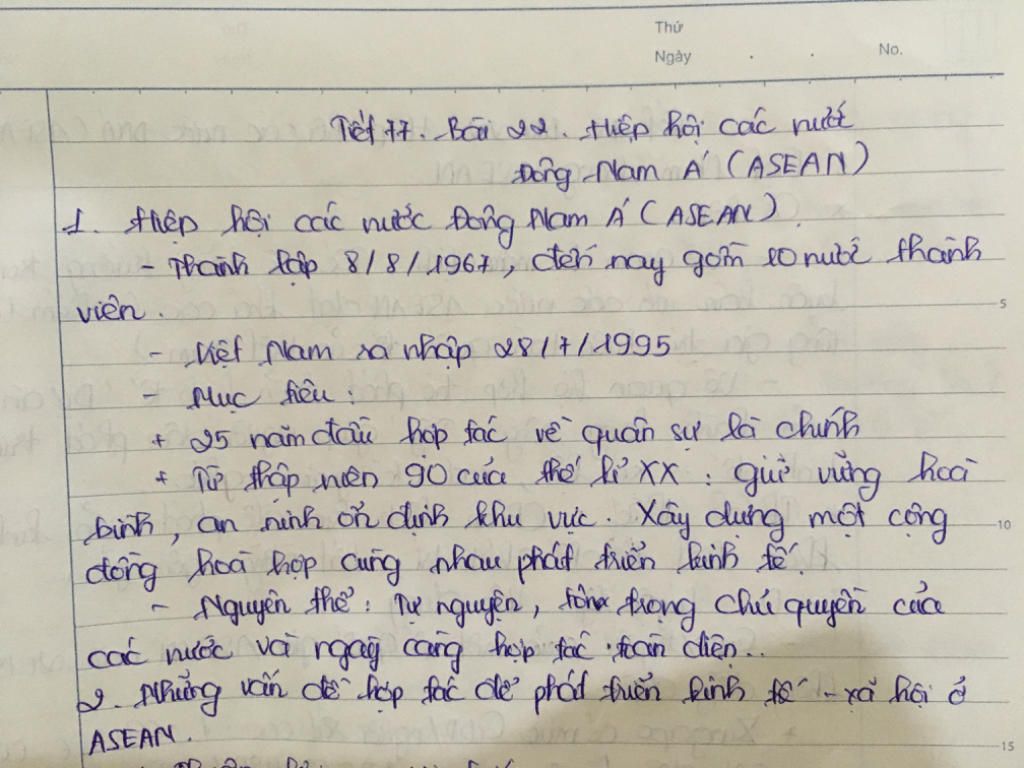 Thứ
Ngày . . No.
Tiết 77. Bài 22. Hiệp hội các nước
Đông Nam Á (ASEAN)
1. Hiệp hội các nước Đông Nam Á (ASEAN)
- Thành lập 8/8/1967, đến nay gồm 10 nước thành
viên.
5
- Việt Nam ra nhập 28/7/1995
- Mục tiêu:
+ 25 năm đầu hợp tác về quân sự là chính
+ Từ thập niên 90 của thế kỉ XX: giữ vững hoà
bình, an ninh ổn định khu vực. Xây dựng một cộng
10
đồng hoà hợp cùng nhau phát triển kinh tế.
- Nguyên thể: Tự nguyện, tôn trọng chủ quyền của
các nước và ngày càng hợp tác toàn diện..
2. Những vấn đề hợp tác để phát triển kinh tế - xã hội ở
ASEAN.
15